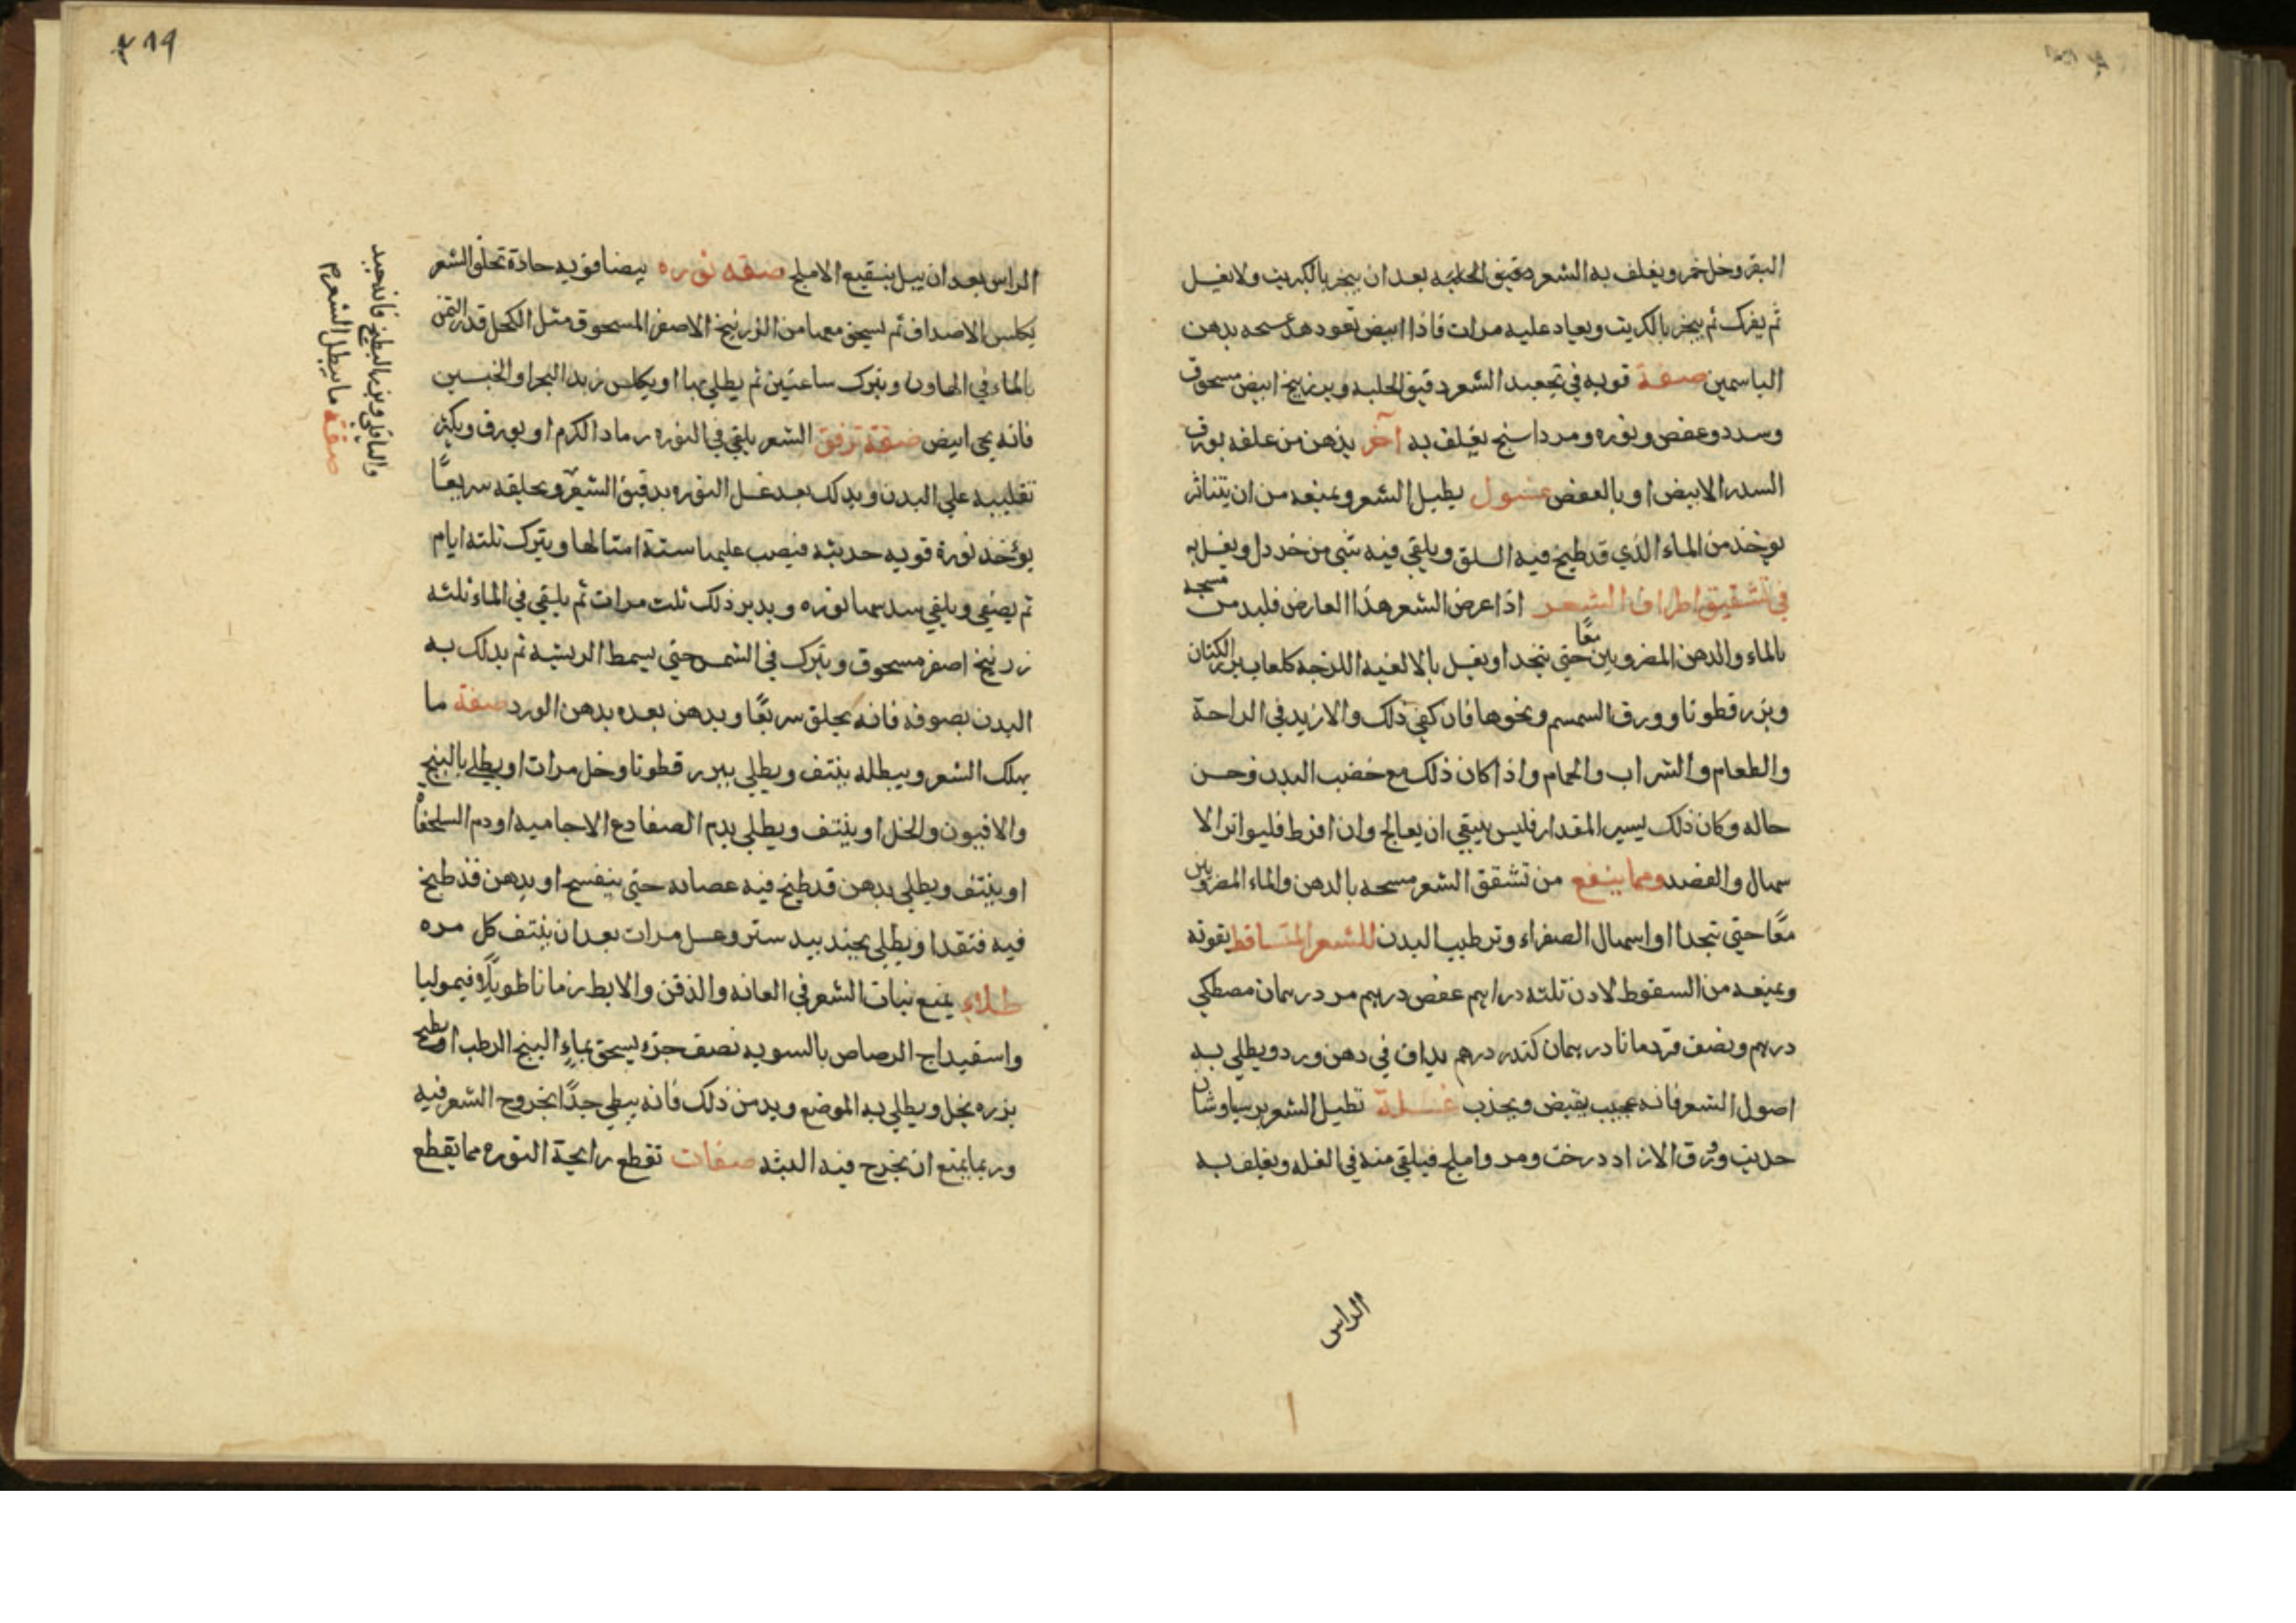 البقر وخل خمر ويغلف به الشعر دقيق الحلبه بعد ان يبخر بالكبريت ولا يغسل
ثم يفرك ثم يبخر بالكبريت ويعاد عليه مرات فاذا ابيض تعود مسحه بدهن
الياسمين صفة قويه في تجعيد الشعر دقيق الحلبه وبزر بنج ابيض مسحوق
وسدر وعفص ونوره ومرداسنج يغلف به آخر يدهن من علفه بورق
السدر الابيض او بالعفص غسول يطيل الشعر ويمنعه من ان يتناثر
يوخذ من الماء الذي قد طبخ فيه السلق ويلقي فيه شي من خردل ويغسل به
في تشقيق اطراف الشعر اذا عرض الشعر هذا العارض فلابد من مسحه
بالماء والدهن المضروبين معًا حتي يتحدا او يغسل بالالعبه اللزجه كلعاب بزر الكتان
وبزر قطونا وورق السمسم ونحوها فان كفي ذلك والا زيد في الراحة
والطعام والشراب والحمام واذا كان ذلك مع خصب البدن وحسن
حاله وكان ذلك يسير المقدار فليس ينبغي ان يعالج وان افرط فليواتر الا
سهال والفصد ومما ينفع من تشقق الشعر مسحه بالدهن والماء المضروبين
معًا حتي يتحدا او اسهال الصفراء وترطيب البدن للشعر المتساقط يقوته
ويمنعه من السقوط لادن ثلثه دراهم عفص درهم مر درهمان مصطكي
درهم ونصف قردمانا درهمان كندر درهم يداف في دهن ورد ويطلي به
اصول الشعر فانه عجيب يقبض ويجذب غسلة تطيل الشعر برسياوشان
حديث وورق الازاد درخت ومر واملج فيلقي منه في الغسله ويغلف به
الراس
٤١٩
الراس بعد ان يبل بنقيع الاملج صفه نوره بيضا قويه حادة تحلق الشعر
يكلس الاصداف ثم يسحق معها من الزرنيخ الاصفر المسحوق مثل الكحل قدر الثمن
بالماء في الهاون ويترك ساعتين ثم يطلي بها او يكلس زبد البحر او الجبسين
فانه يجي ابيض صفة ترقق الشعر يلقي في النوره رماد الكرم او بورق ويكثر
تقليبه علي البدن ويدلك بعد غسل النوره بدقيق الشعير ويحلقه سريعًا
يوخذ نورة قويه حديثه فيصب عليها ستة امثالها ويترك ثلثه ايام
ثم يصفي ويلقي سدسها نوره ويدبر ذلك ثلث مرات ثم يلقي في الماء ثلثه
زرنيخ اصفر مسحوق ويترك في الشمس حتي يسمط الريشه ثم يدلك به
البدن بصوفه فانه يحلق سريعًا ويدهن بعده بدهن الورد صفة ما
يهلك الشعر ويبطله ينتف ويطلي ببزر قطونا وخل مرات او يطلي بالبنج
والافيون والخل او ينتف ويطلي بدم الضفادع الاجاميه او دم السلحفاه
او ينتف ويطلي بدهن قد طبخ فيه عصايه حتي ينفسخ او بدهن قد طبخ
فيه قنفدا ويطلي بجندبيدستر وعسل مرات بعد ان ينتف كل مره
طلاء يمنع نبات الشعر في العانه والذقن والابط زمانا طويلًا قيموليا
واسفيداج الرصاص بالسويه نصف جزه يسحق بماء البنج الرطب او يطبخ
بزره بخل ويطلي به الموضع ويدمن ذلك فانه يبطي جدًا بخروج الشعر فيه
وربما يمنع ان يخرج فيه البته صفات تقطع رايحة النوره مما يقطع
والباقلي وبزر البطيخ فانه جيد
صفة ما يبطل الشعر م